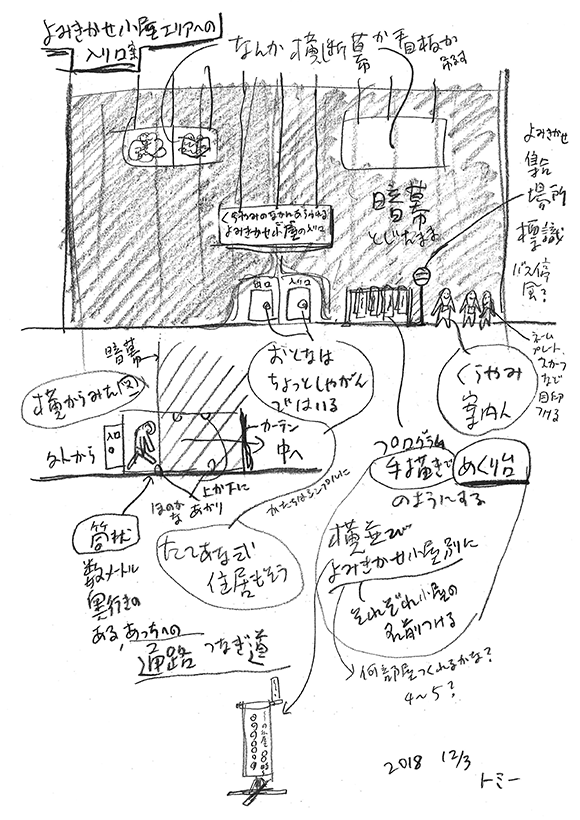 よみきかせ小屋エリアへの
入り口案
なんか横断幕か看板か
吊対
よみきかせ
集合
場所
標識
バス停
風？
暗幕
とじたまま
くらやみのなかにあらわれる
よみきかせ小屋の入口
出口
入り口
おとなは
ちょっとしゃがん
ではいる
くらやみ
案内人
ネーム
プレート、
スカーフ
など
目印
つける
暗幕
横からみた図
外から
入口
カーテン
中へ
上か下に
ほのかな
あかり
筒状
数メートル
奥行きの
ある、あっちへの
通路 つなぎ道
かたちはシンプルに
たてあな式
住居もぞう
プログラム
手描きで
めくり台
のようにする
横並び
よみきかせ小屋別に
それぞれ小屋の
名前つける
何部屋つくれるかな？
4〜5？
2018 12/3
トミー